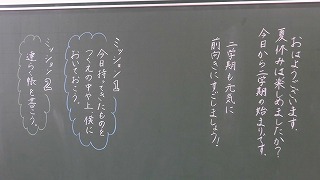 おはようございます。
夏休みは楽しめましたか？
今日から二学期の始まりです。
二学期も元気に
前向きにすごしましょう！
ミッション1
今日持ってきたものを
つくえの中や上、横に
おいておこう。
ミッション2
連らく帳を書こう。